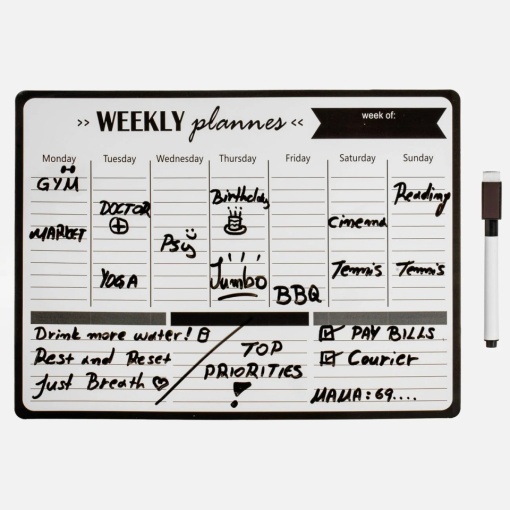 >> WEEKLY plannes <<
week of:
Monday Tuesday Wednesday Thursday Friday Saturday Sunday
GYM
MARKET
DOCTOR
YOGA
Psy
Birthday
Jumbo
BBQ
Cinema
Tennis
Reading
Tennis
Drink more water!
Rest and Reset
Just Breath
TOP
PRIORITIES
!
PAY BILLS
Courier
MAMA: 69....